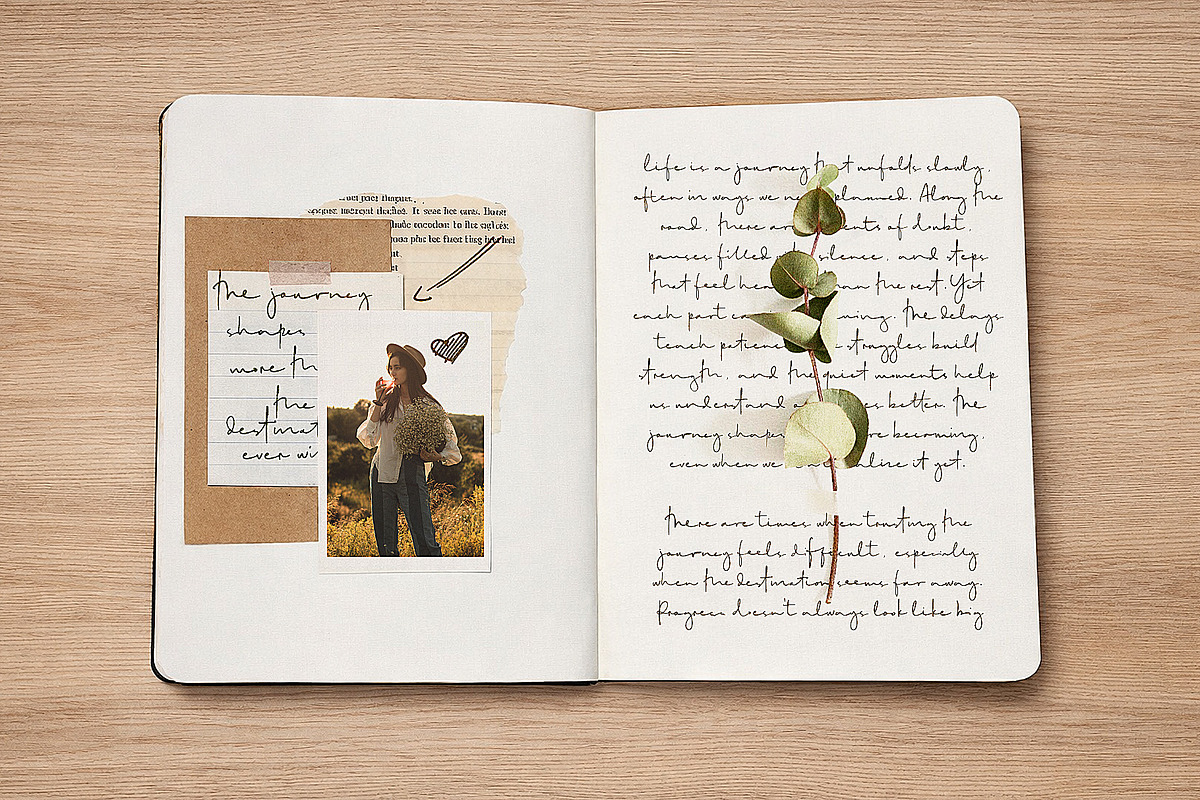 the journey
shapes
more th
the
destinat
ever wi
life is a journey that unfolds slowly,
often in ways we ne planned. Along the
road, there are ents of doubt,
pauses filled silence, and steps
that feel hea an the rest. Yet
each part ca ning. The delays
teach patienc struggles build
strength, and the quiet moments help
us understand es better. The
journey shape re becoming,
even when we alize it yet.
There are times when trusting the
journey feels difficult, especially
when the destination seems far away.
Progress doesn't always look like big